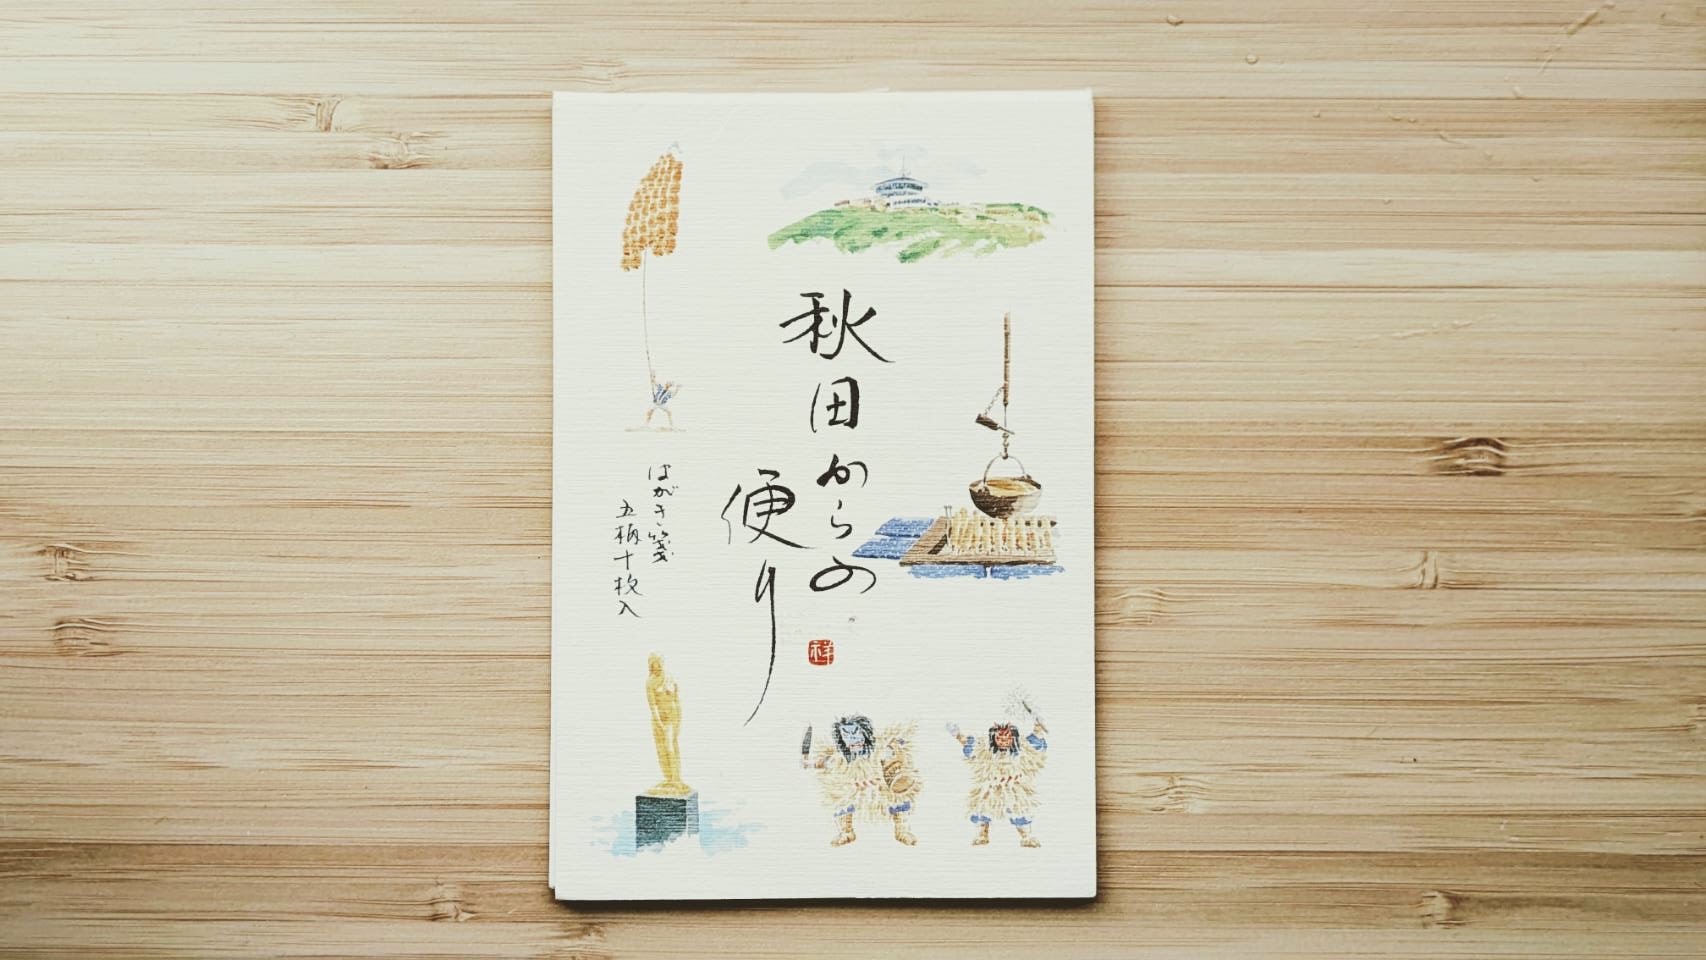 秋田からの
便り
はがき箋
五柄十枚入
祥